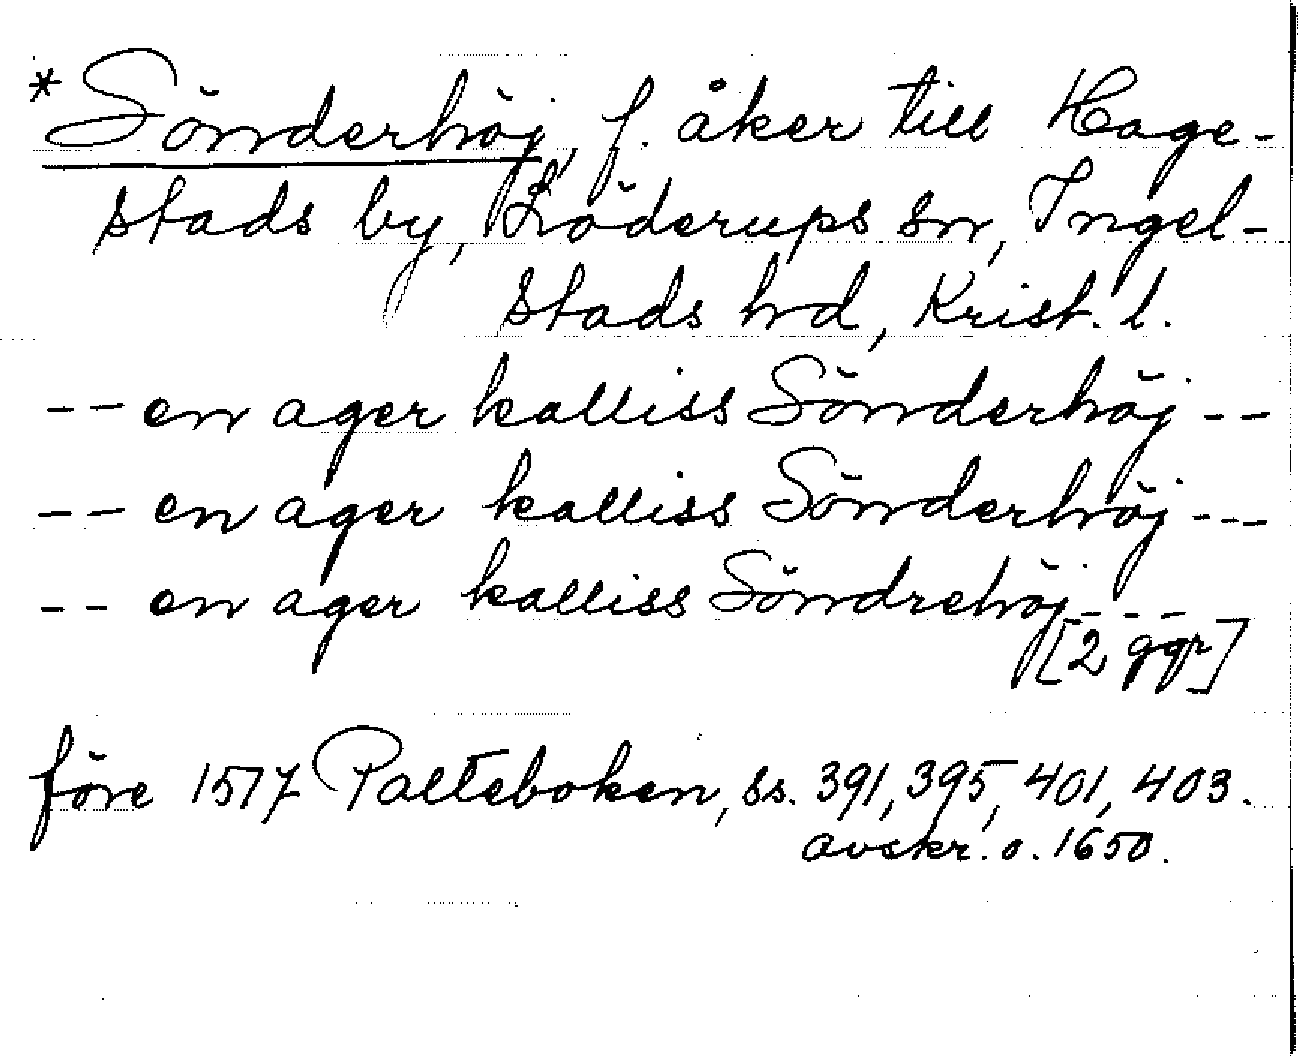 *Sönderhöj, f. åker till Hage-
stads by, Löderups sn, Ingel-
stads hrd, Krist. l.
-- en ager kalliss Sönderhöj --
-- en ager kalliss Sönderhöj ---
-- en ager kalliss Söndrehöj ---
[2 ggr]
före 1517 Palteboken, ss. 391, 395, 401, 403.
avskr. o. 1650.